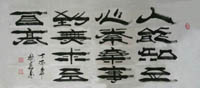 人能知足
心常事
到無求品
自高